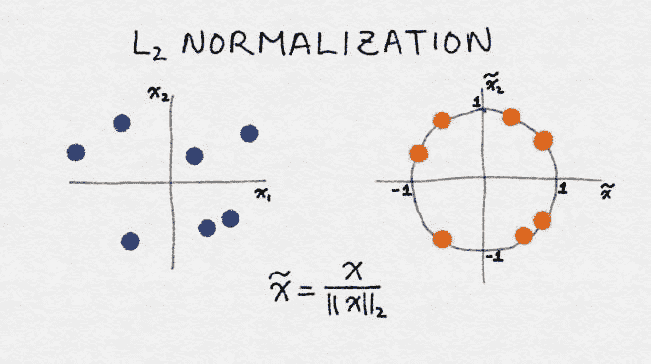 L₂ NORMALIZATION
x₂
x₁
x̃₂
1
-1
1
x̃
-1
x̃ = x / ||x||₂